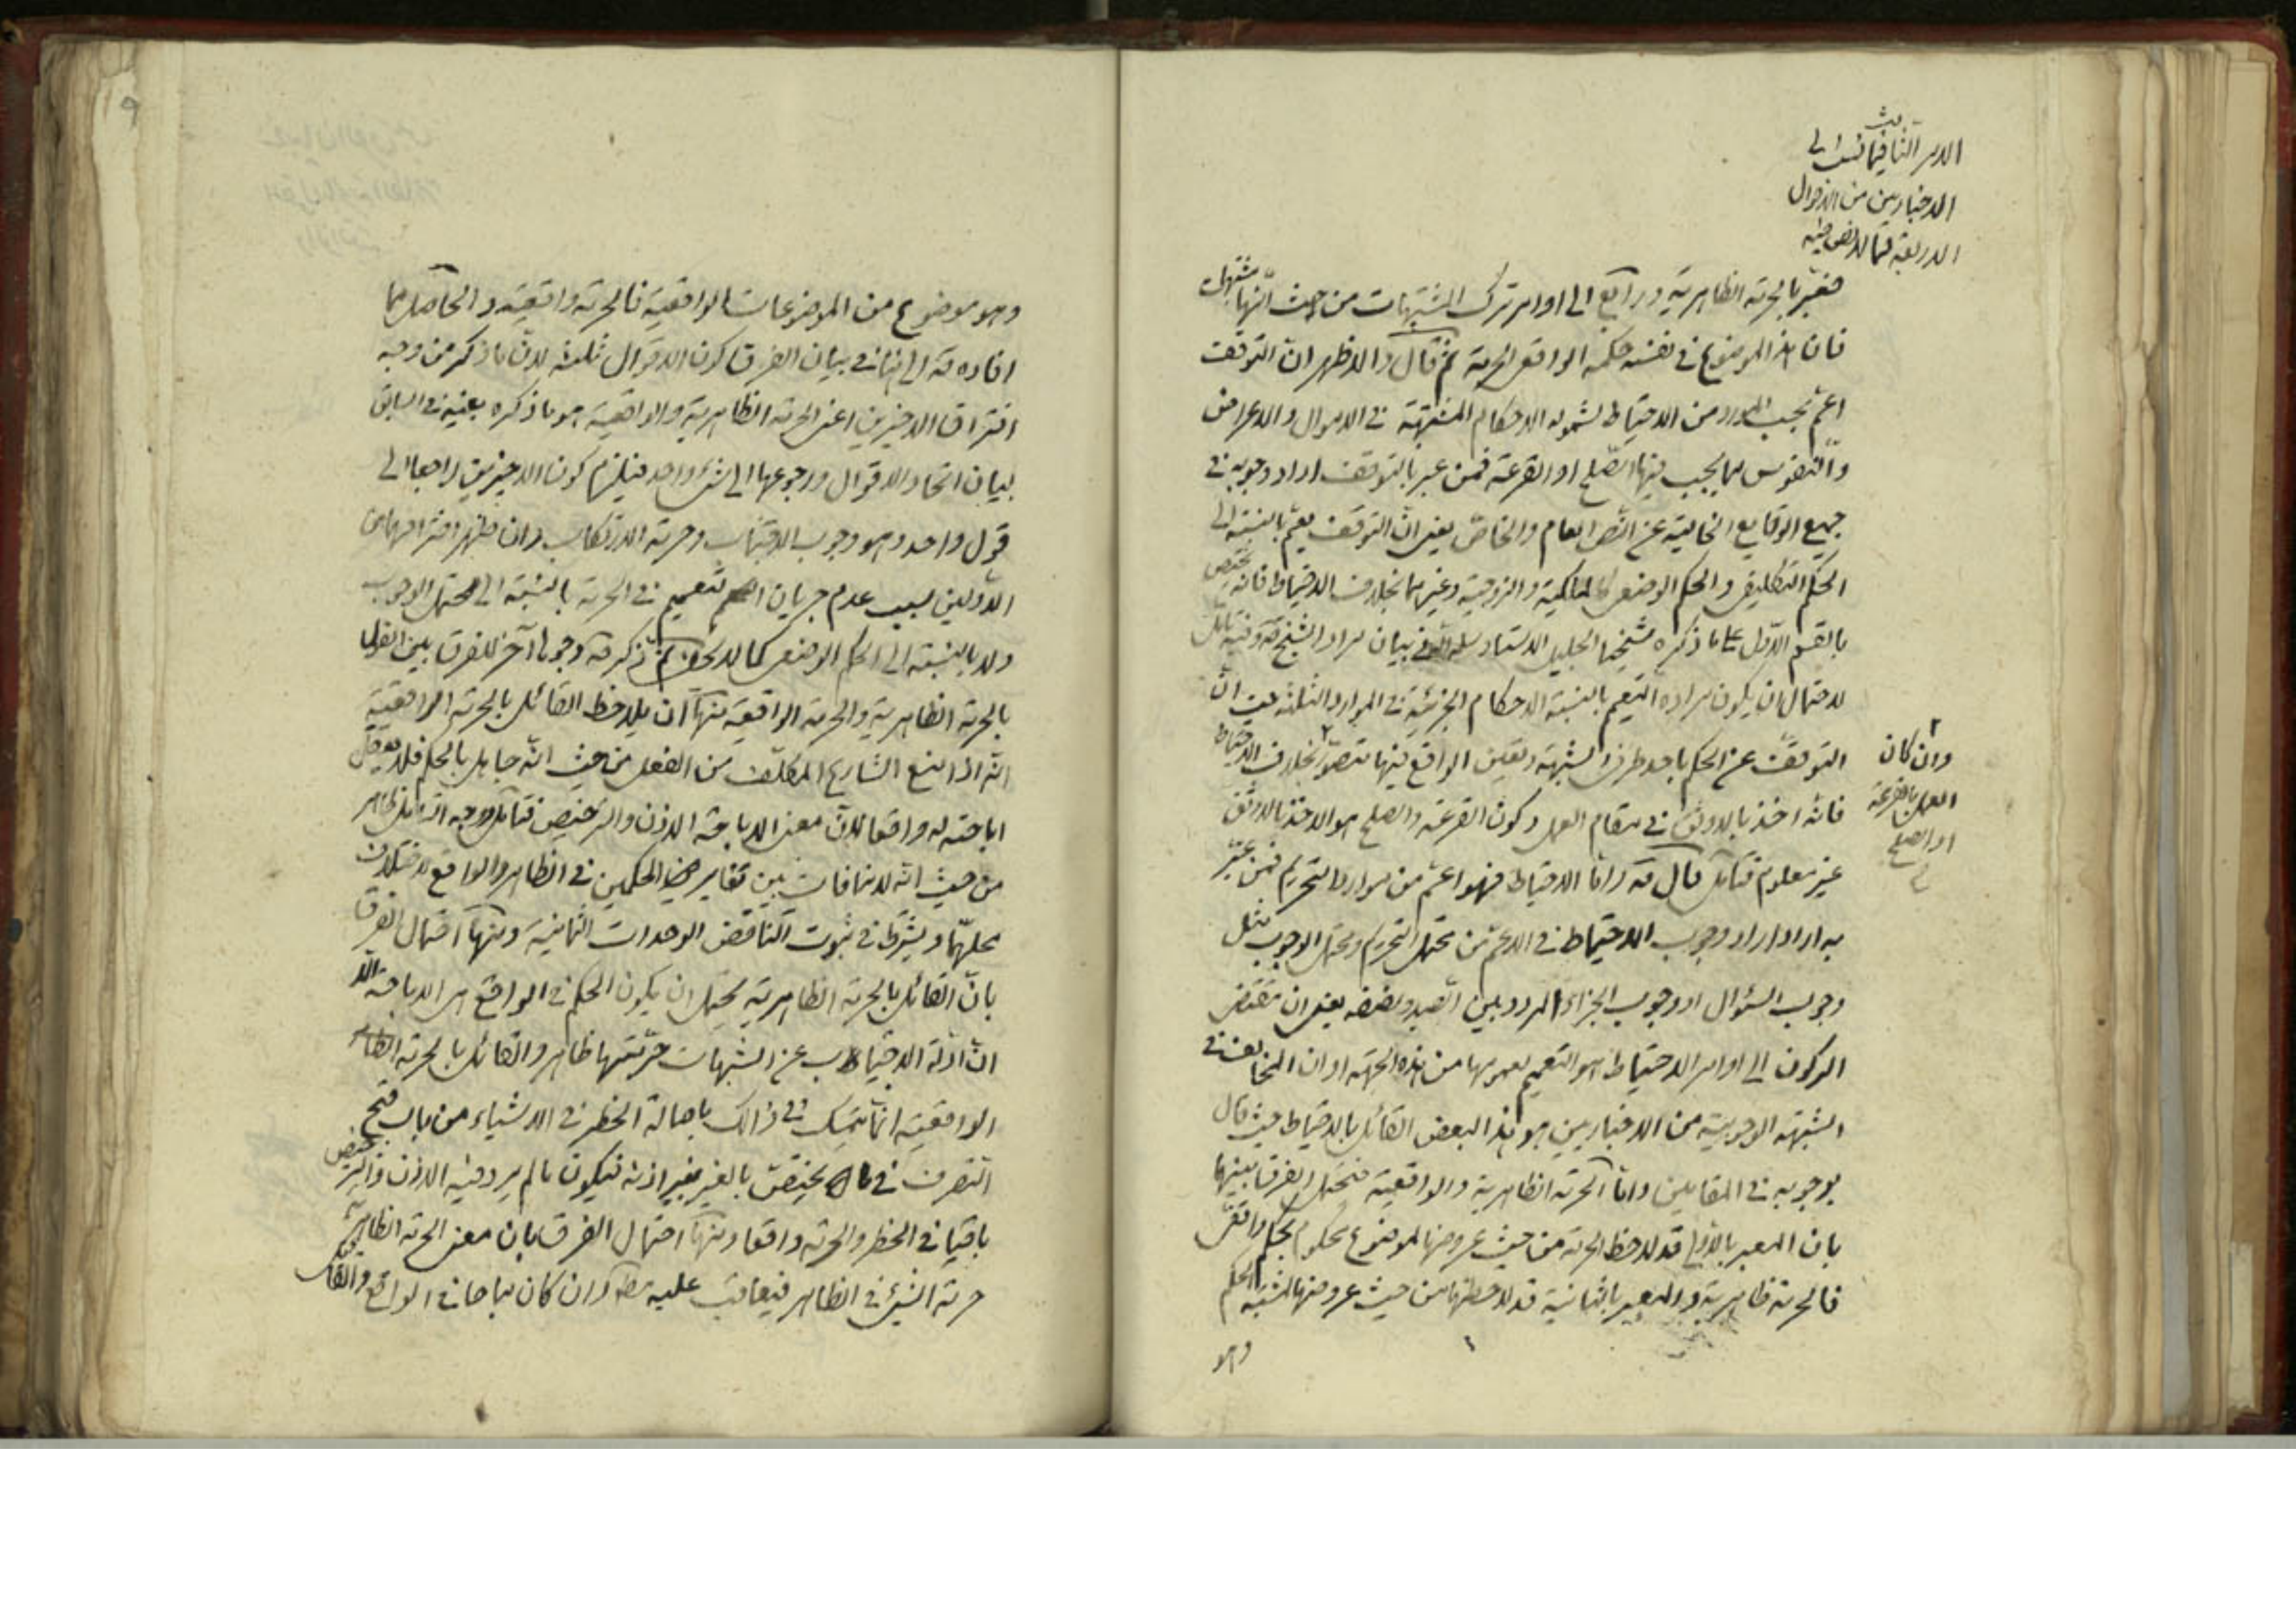 فيما نسب الى
الاخباريين من الاقوال
الاربعة فيما لا نص فيه
فعبر بالحرمة الظاهرية ورابع الى اوامر ترك المشتبهات من حيث انها مشتبهات
فان هذا الموضوع في نفسه حكمه الواقعي الحرمة ثم قال والاظهر ان التوقف
اعم بحسب المورد من الاحتياط لشموله الاحكام المشتبهة في الاموال والاعراض
والنفوس مما يجب فيها الصلح او القرعة فمن عبر بالتوقف اراد وجوبه في
جميع الوقايع الخالية عن النص العام والخاص يعني ان التوقف يعم بالنسبة الى
الحكم التكليفي والحكم الوضعي كالمالكية والزوجية وغيرهما بخلاف الاحتياط فانه يختص
بالقسم الاول على ما ذكره شيخنا الجليل الاستاد سلمه الله في بيان مراد الشيخ قه وفيه تامل
لاحتمال ان يكون مراده التعميم بالنسبة الاحكام الجزئية في الموارد الثلثة حيث ان
التوقف عن الحكم باحد طرفي الشبهة وتعيين الواقع فيها متصور بخلاف الاحتياط
وان كان
العمل بالقرعة
او الصلح
فانه اخذ بالاوثق في مقام العمل وكون القرعة والصلح هو الاخذ بالاوثق
غير معلوم فتامل قال قه واما الاحتياط فهو اعم من موارد التحريم فمن عبر
به اراد اراد وجوب الاحتياط في الاعم من محتمل التحريم ومحتمل الوجوب مثل
وجوب السؤال او وجوب الجزاء المردد بين الصيد ونصفه يعني ان مقتضى
الركون الى اوامر الاحتياط هو التعميم لعمومها من هذه الجهة او ان المخالف في
الشبهة الوجوبية من الاخباريين هو هذا البعض القائل بالاحتياط حيث قال
بوجوبه في المقامين واما الحرمة الظاهرية والواقعية فيحتمل الفرق بينهما
بان المعبر بالاولى قد لاحظ الحرمة من حيث عروضها لموضوع محكوم بحكم واقعي
فالحرمة ظاهرية والمعبر بالثانية قد لاحظها من حيث عروضها لمشتبه الحكم
وهو
وهو موضوع من الموضوعات الواقعية فالحرمة واقعية والحاصل مما
افاده قه الى هنا في بيان الفرق كون الاقوال ثلثة لان ما ذكر من وجه
افتراق الاخيرين اعني الحرمة الظاهرية والواقعية هو ما ذكره بعينه في السابق
لبيان اتحاد الاقوال ورجوعها الى شيء واحد فيلزم كون الاخيرين راجعا الى
قول واحد وهو وجوب الاجتناب وحرمة الارتكاب وان ظهر افتراقهما من
الاولين بسبب عدم جريان التعميم في الحرمة بالنسبة الى محتمل الوجوب
ولا بالنسبة الى الحكم الوضعي كما لا يخفى ثم ذكر قه وجوها آخر للفرق بين القول
بالحرمة الظاهرية والحرمة الواقعية منها ان يلاحظ القائل بالحرمة الواقعية
انه اذا منع الشارع المكلف من الفعل من حيث انه جاهل بالحكم فلا يعقل
اباحته له واقعا لان معنى الاباحة الاذن والترخيص فتامل ووجه التامل ظاهر
من حيث انه لا منافات بين تغاير الحكمين في الظاهر والواقع لاختلاف
محلهما ويشترط في ثبوت التناقض الوحدات الثمانية ومنها احتمال الفرق
بان القائل بالحرمة الظاهرية يحتمل ان يكون الحكم في الواقع هي الاباحة الا
ان ادلة الاجتناب عن الشبهات حرمتها ظاهرا والقائل بالحرمة
الواقعية انما يتمسك في ذلك باصالة الحظر في الاشياء من باب قبح
التصرف في ما يختص بالغير بغير اذنه فيكون ما لم يرد فيه الاذن والترخيص
باقيا في الحظر والحرمة واقعا ومنها احتمال الفرق بان معنى الحرمة الظاهرية
حرمة الشيء في الظاهر فيعاقب عليه مطلقا وان كان مباحا في الواقع والقائل